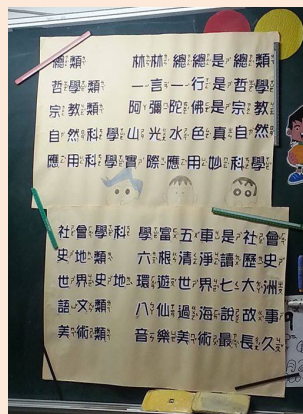 總類 林林總總是總類
哲學類 一言一行是哲學
宗教類 阿彌陀佛是宗教
自然科學 山光水色真自然
應用科學 實際應用妙科學
社會學科 學富五車是社會
史地類 六根清淨讀歷史
世界史地 環遊世界七大洲
語文類 八仙過海說故事
美術類 音樂美術最長久